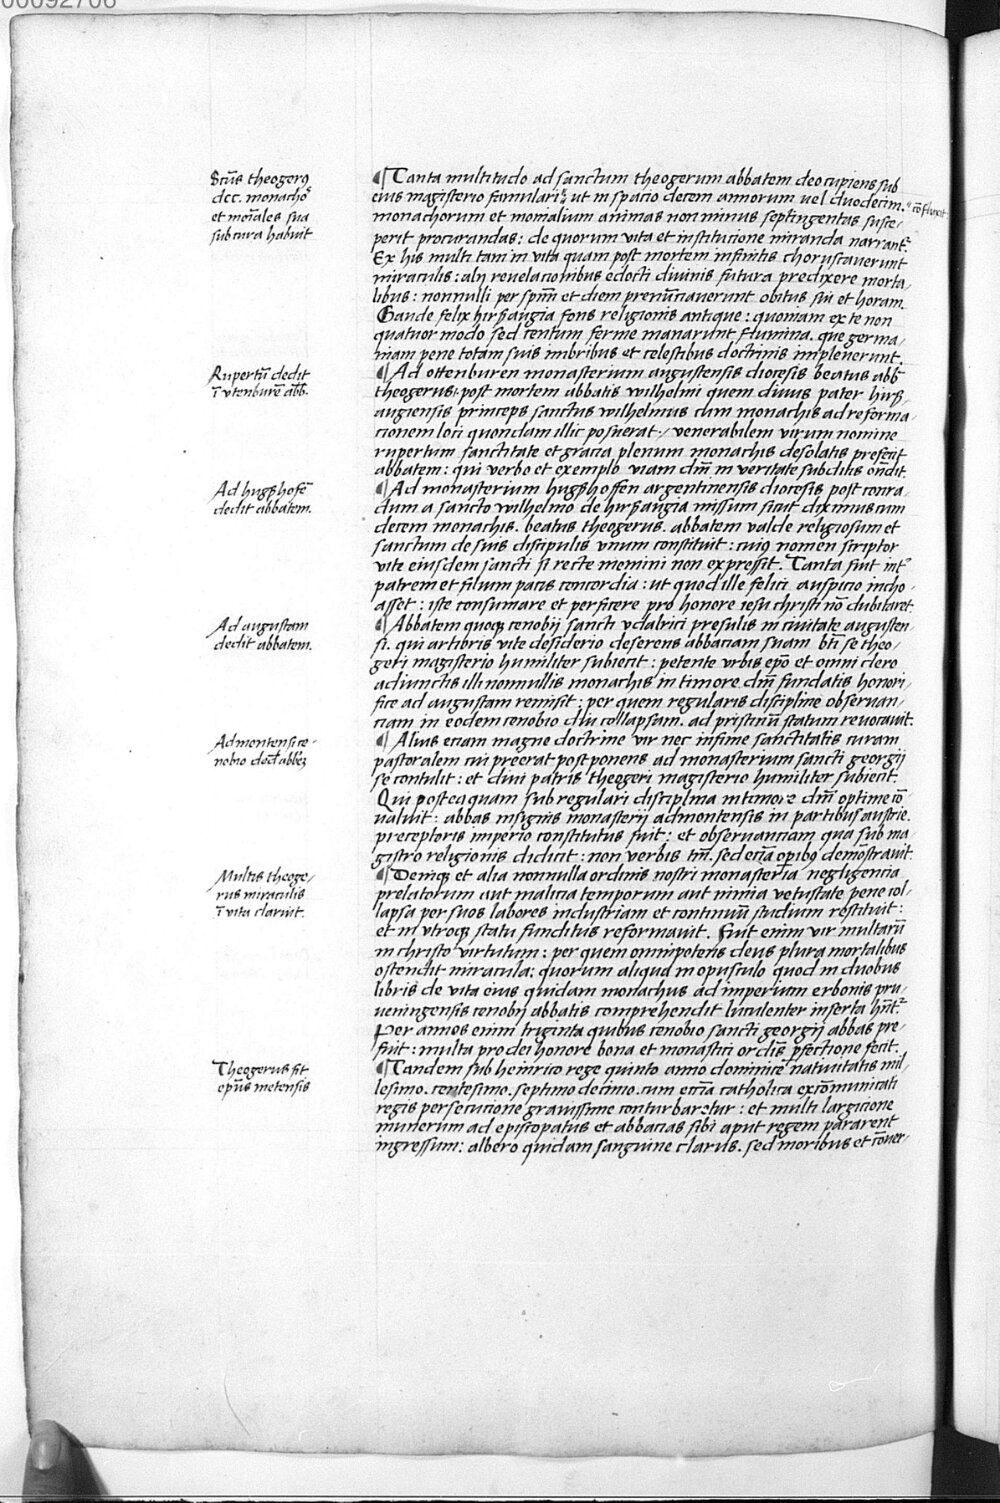 Scūs theogerꝰ
dcc. monachoꝝ
et moīales sua
sub cura habuit
¶ Tanta multitudo ad sanctum theogerum abbatem deo cupiens sub
eius magisterio famulari: ut in spacio decem annorum uel duodecim. cōfluxit
monachorum et monialium animas non minus septingentas susce-
perit procurandas: de quorum vita et institucione miranda narrantᷣ.
Ex his multi tam in vita quam post mortem infinitis choruscauerunt
miraculis: alij reuelacionibus edocti diuinis futura predixere morta-
libus: nonnulli per spm̄ et diem prenūciauerunt obitus sui et horam.
Gaude felix hirsaugia fons religionis antique: quoniam ex te non
quatuor modo sed centum ferme manarunt flumina. que germa-
niam pene totam suis imbribus et celestibus doctrinis impleuerunt.
Rupertū dedit
ī vtenburē abb̄.
¶ Ad ottenburen monasterium augustensis diocesis beatus abb̄
theogerus: post mortem abbatis wilhelmi quem diuus pater hirs-
augiensis princeps sanctus wilhelmus cum monachis ad reforma-
cionem loci quondam illic posuerat: venerabilem virum nomine
rupertum sanctitate et gracia plenum monachis desolatis prefecit
abbatem: qui verbo et exemplo viam dm̄ in veritate subditis on̄dit.
Ad hugshofē
dedit abbatem.
¶ Ad monasterium hugshoffen argentinensis diocesis post conra-
dum a sancto wilhelmo de hirsaugia missum sicut diximus cum
decem monachis. beatus theogerus. abbatem valde religiosum et
sanctum de suis discipulis vnum constituit: cuiꝰ nomen scriptor
vite eiusdem sancti si recte memini non expressit. Tanta fuit int̄
patrem et filium pacis concordia: ut quod ille felici auspicio incho-
asset: iste consumare et perficere pro honore iesu christi nō dubitaret.
Ad augustam
dedit abbatem.
¶ Abbatem quoqꝫ cenobij sancti vdalrici presulis in ciuitate augusten-
si. qui artioris vite desiderio deserens abbaciam suam bt̄i se theo-
geri magisterio humiliter subiecit: petente vrbis ep̄o et omni clero
adiunctis illi nonnullis monachis in timore dm̄ fundatis honori-
fice ad augustam remisit: per quem regularis discipline obseruan-
ciam in eodem cenobio diu collapsam. ad pristinū statum reuocauit.
Admontensi ce-
nobio ded̄t abbēꝫ
¶ Alius eciam magne doctrine vir nec infime sanctitatis curam
pastoralem cui preerat postponens ad monasterium sancti georgij
se contulit: et diui patris theogeri magisterio humiliter subiecit.
Qui postea quam sub regulari disciplina in timore dm̄ optime cō-
ualuit: abbas insignis monasterij admontensis in partibus austrie.
preceptoris imperio constitutus fuit: et obseruanciam qua sub ma-
gistro religionis didicit: non verbis tm̄. sed eciā operibꝰ demōstrauit.
Multis theoge-
rus miraculis
ī vita claruit.
¶ Deniqꝫ et alia nonnulla ordinis nostri monasteria negligencia
prelatorum aut malicia temporum aut nimia vetustate pene col-
lapsa per suos labores industriam et continuū studium restituit:
et in vtroqꝫ statu funditus reformauit. Fuit enim vir multarū
in christo virtutum: per quem omnipotens deus plura mortalibus
ostendit miracula: quorum aliqua in opusculo quod in duobus
libris de vita eius quidam monachus ad imperium erbonis pru-
ueningensis cenobij abbatis comprehendit luculenter inserta hn̄t.
Per annos enim triginta quibus cenobio sancti georgij abbas pre-
fuit: multa pro dei honore bona et monastici ordīs ꝑfectione fecit.
Theogerus fit
ep̄us metensis
¶ Tandem sub heinrico rege quinto anno dominice natiuitatis mil-
lesimo. centesimo. septimo decimo. cum eccīa catholica excōmunicati
regis persecucione grauissime conturbaretur: et multi largicione
munerum ad episcopatus et abbacias sibi aput regem pararent
ingressum: albero quidam sanguine clarus. sed moribus et cōuer-